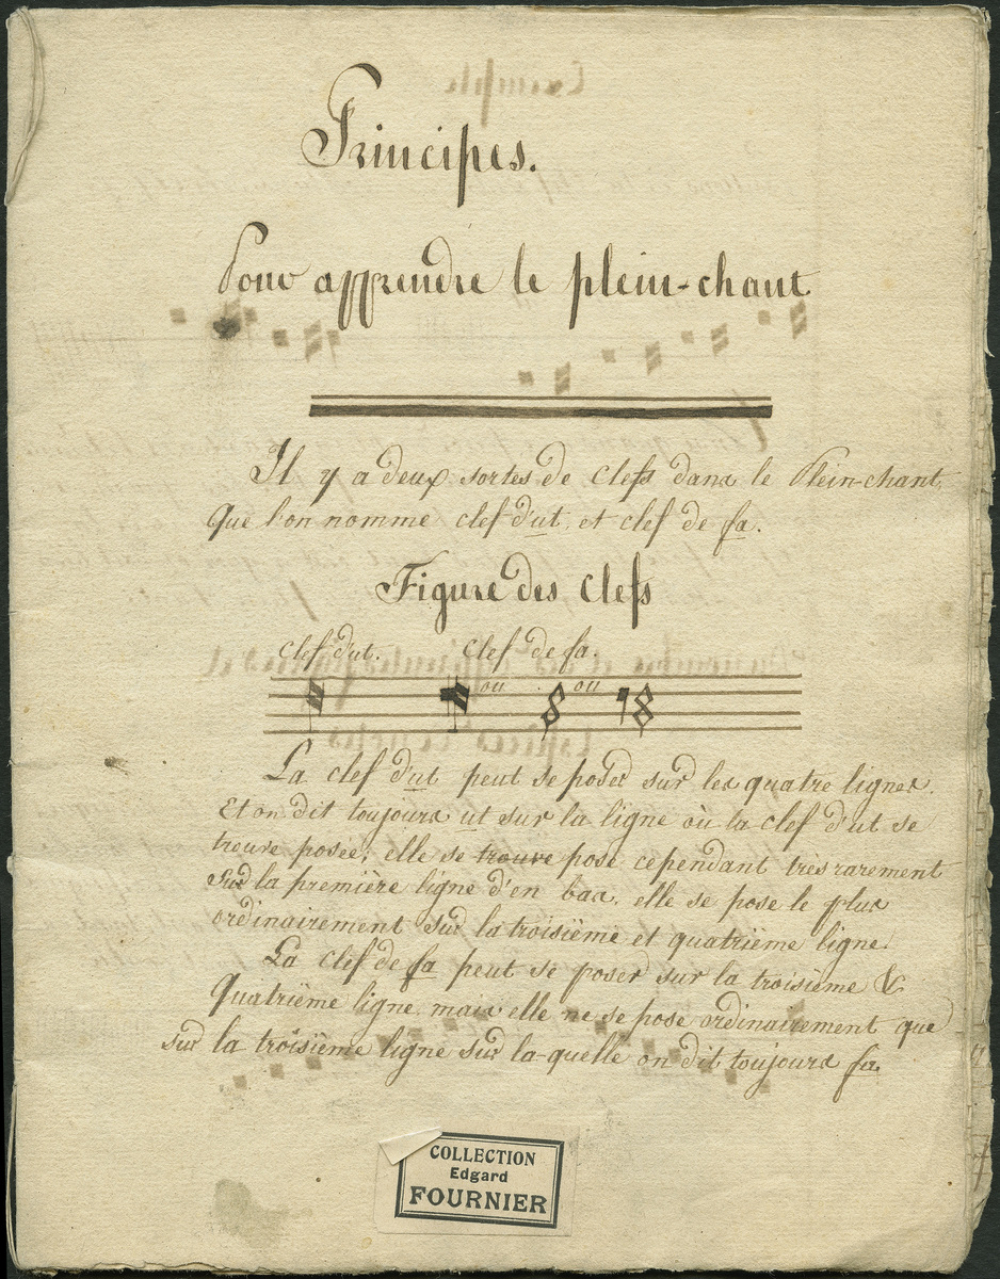 Principes.
Pour apprendre le plein-chant
Il y a deux sortes de clefs dans le Plein-chant,
Que l'on nomme clef d'ut, et clef de fa.
Figure des Clefs
Clef d'ut. Clef de fa.
ou ou
La clef d'ut peut se poser sur les quatre lignes.
Et on dit toujours ut sur la ligne où la clef d'ut se
treuve posée; elle se trouve pose cependant très rarement
sur la première ligne d'en bas. elle se pose le plus
ordinairement sur la troisiëme et quatriëme ligne.
La clef de fa peut se poser sur la troisième &
Quatriëme ligne, mais elle ne se pose ordinairement que
sur la troisiëme ligne sur la-quelle on dit toujours fa.
COLLECTION
Edgard
FOURNIER